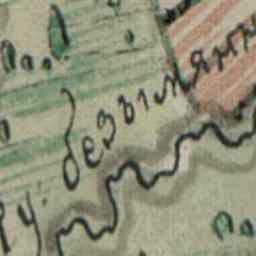 ру. безымянн